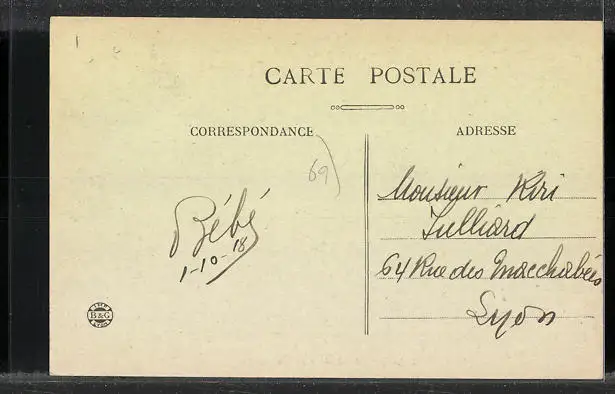 CARTE POSTALE
CORRESPONDANCE
ADRESSE
69
Bébé
1-10-18
Monsieur Kiri
Julliard
64 Rue des Macchabées
Lyon
IMP.
B&G
LYON